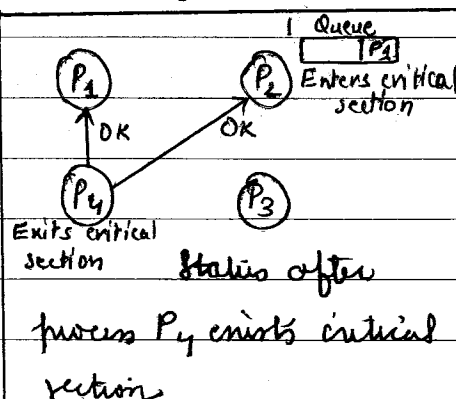 Queue
P1
P1
P2
Enters critical
section
OK
OK
P4
P3
Exits critical
section
Status after
process P4 exists critical
section